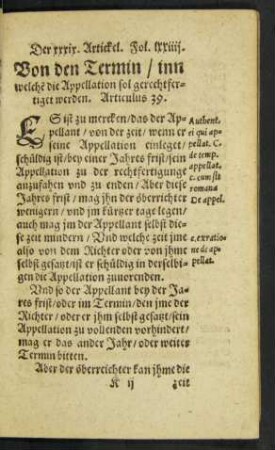 Der xxxix. Artickel. Fol. lxxiiij.
Von den Termin / inn
welchē die Appellation sol gerechtfer-
tiget werden. Articulus 39.
ES ist zu mercken / das der Ap-
pellant / von der zeit / wenn er
seine Appellation einleget /
schüldig ist / bey einer Jahres frist / sein
Appellation zu der rechtfertigunge
anzufahen vnd zu enden / Aber diese
Jahres frist / mag jhn der öberrichter
wenigern / vnd jm kürtzer tage legen /
auch mag jm der Appellant selbst die-
se zeit mindern / Vnd welche zeit jme
also von dem Richter oder von jhme
selbst gesatzt / ist er schüldig in derselbi-
gen die Appellation zuuorenden.
Authent.
ei qui ap-
pellat. C.
de temp.
appellat.
c. cum sit
romana
De appel.
c. ex ratio-
ne de ap-
pellat.
Vnd so der Appellant bey der Ja-
res frist / oder im Termin / den jme der
Richter / oder er jhm selbst gesatzt / sein
Appellation zu vollenden vorhindert /
mag er das ander Jahr / oder weiter
Termin bitten.
Aber der öberreichter kan jhme die
K ij zeit